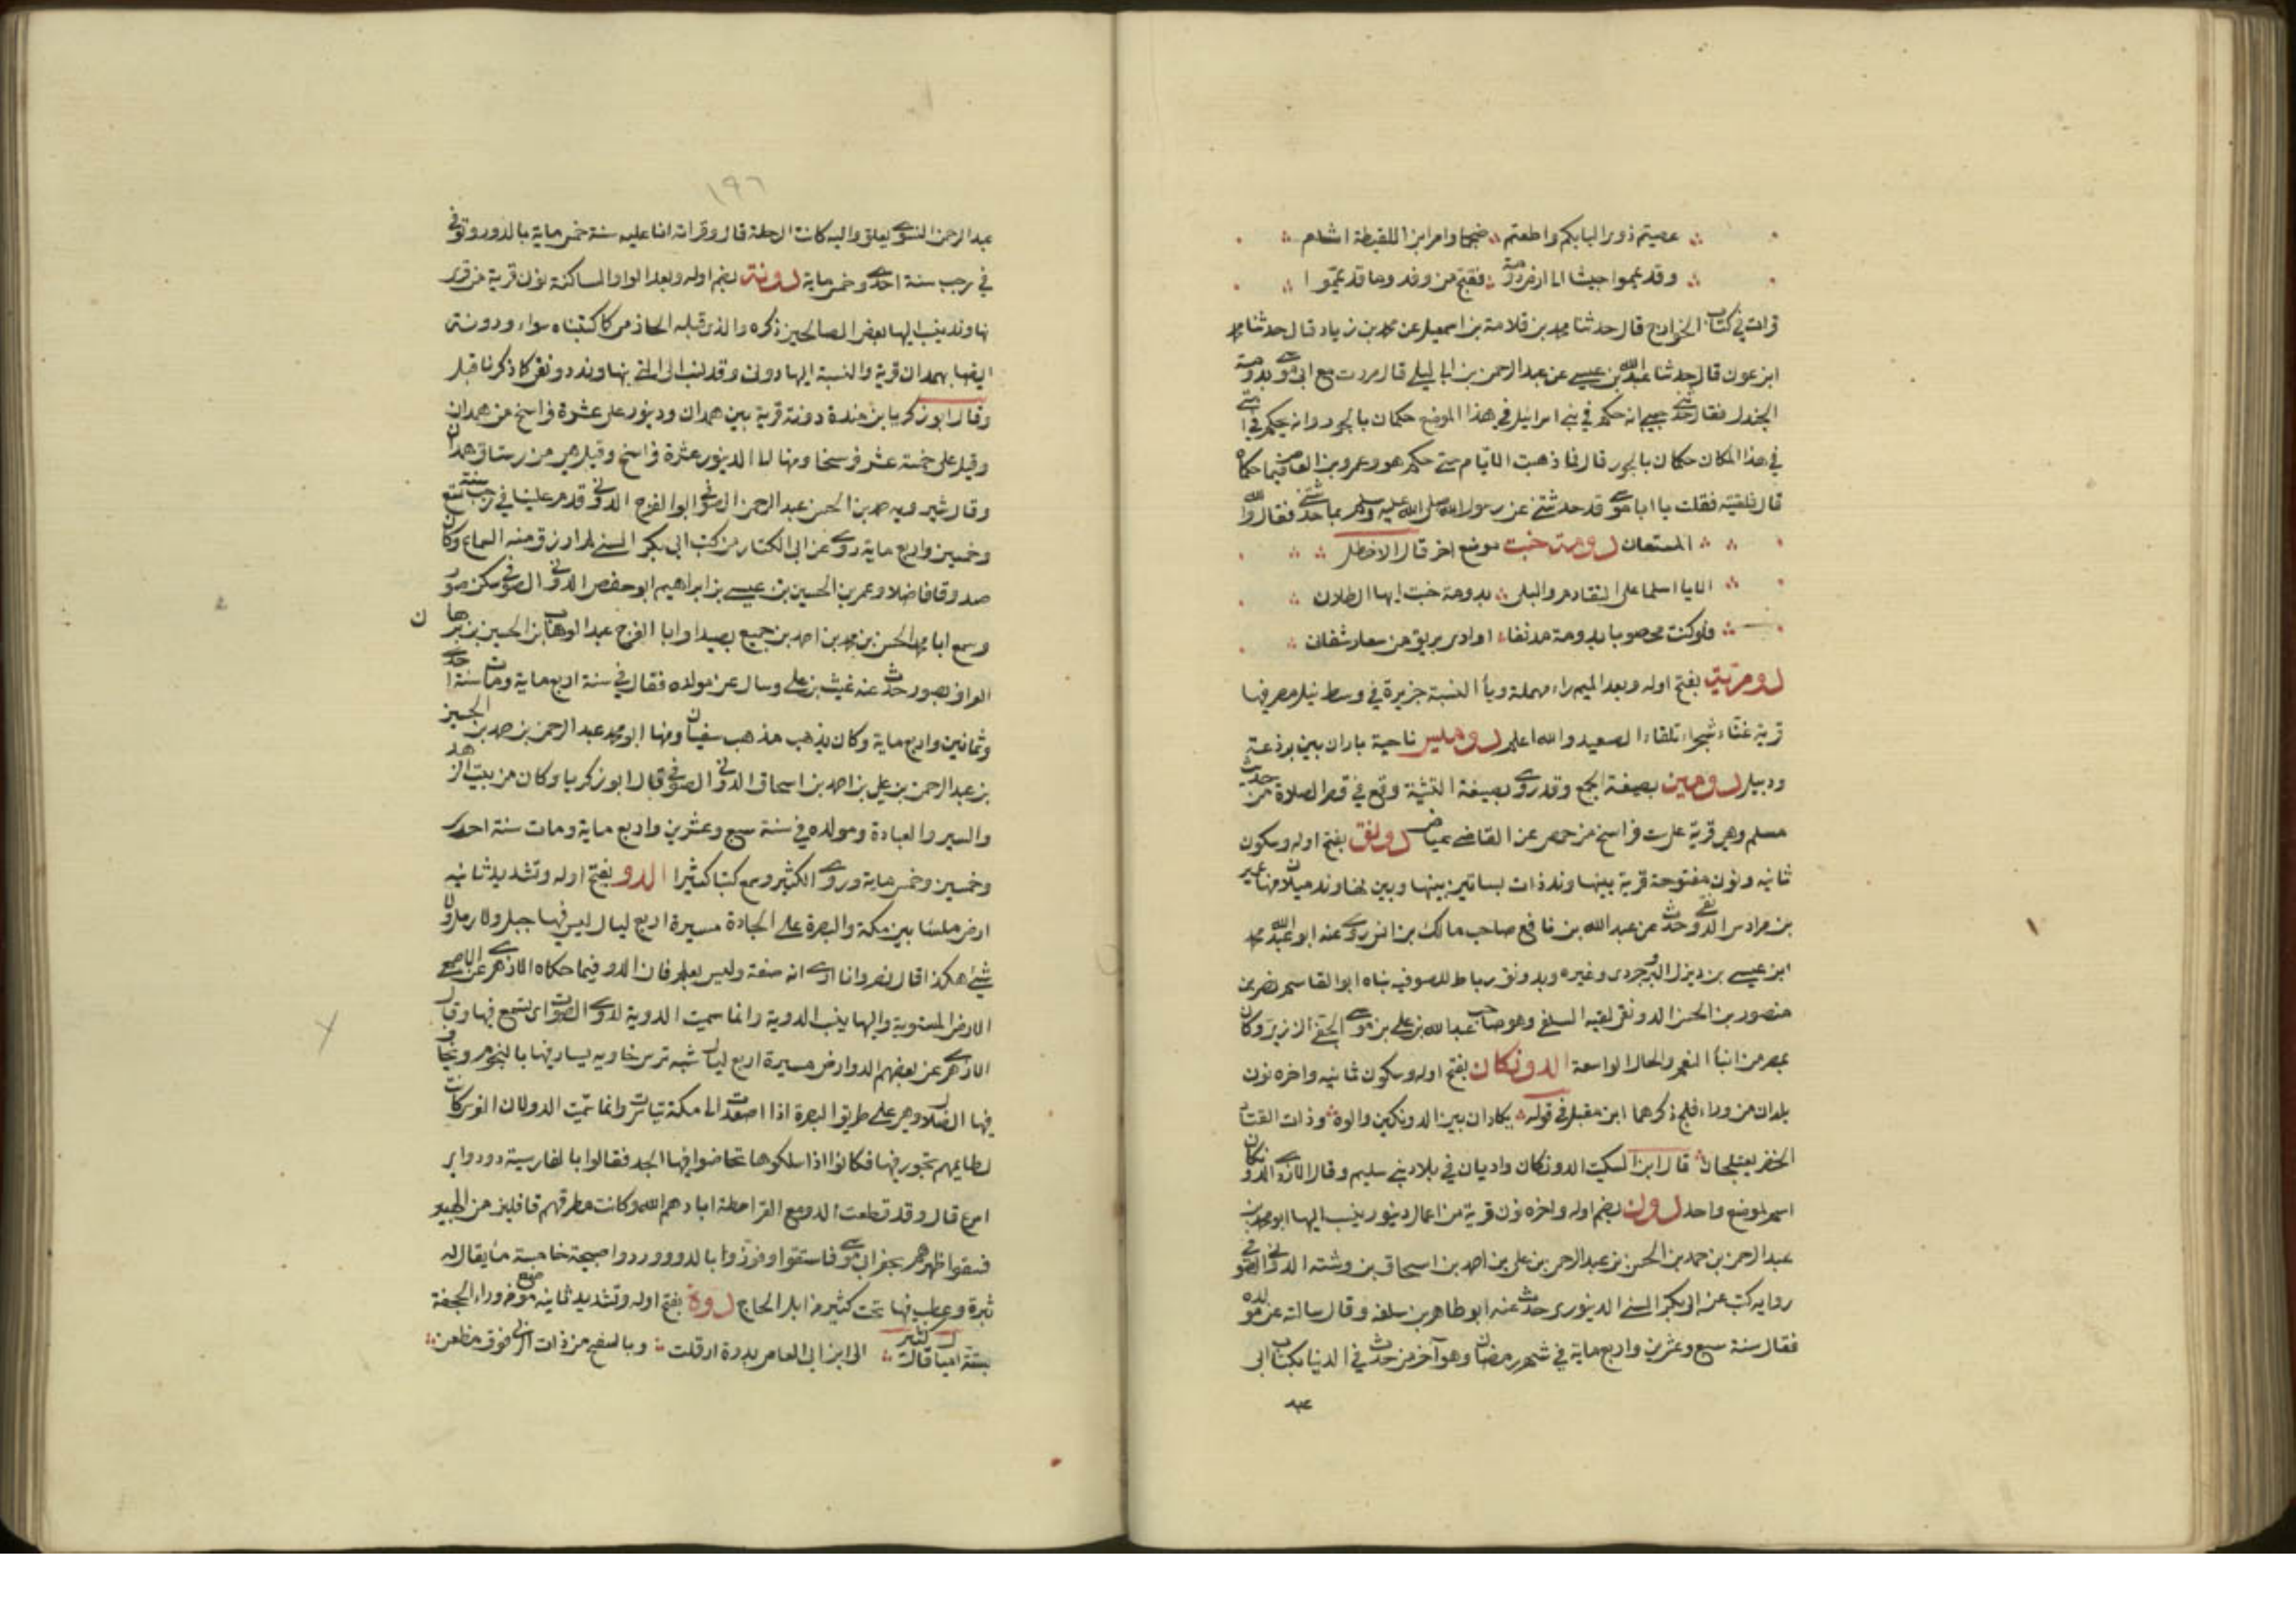 عصيتم ذوي البابكم واطعتم ضجما وامر ابن اللقيطة اشام
وقد يمموا جيشا الى ارض دومة فقبح من وفد وما قد تيمموا
قرات في كتاب الخوارج قال حدثنا محمد بن قلامة بن اسمعيل عن محمد بن زياد قال حدثنا محمد
ابن عون قال حدثنا عبد الله بن عيسى عن عبد الرحمن بن ابي ليلى قال مررت مع ابي موسى بدومة
الجندل فقال حدثني حبيبي انه حكم في بني اسرائيل في هذا الموضع حكمان بالجور وانه يحكم في امتي
في هذا المكان حكمان بالجور قال فما ذهبت الايام حتى حكم هو وعمرو بن العاص فيما حكما
قال فلقيته فقلت يا ابا موسى قد حدثتني عن رسول الله صلى الله عليه وسلم بما حدثتني فقال والله
المستعان دومة خبت موضع اخر قال الاخطل
الا يا اسلما على التقادم والبلى بدومة خبت ايها الطللان
فلو كنت محصوبا بدومة مدنفا اداوى بريق من سعاد شفان
دومرية بفتح اوله وبعد الميم راء مهملة ويا النسبة جزيرة في وسط نيل مصر فيها
قرية غناء شجراء تلقاء الصعيد والله اعلم دوميس ناحية باران بين برذعة
ودبيل دومين بصيغة الجمع وقد روى بصيغة التثنية وقع في قصر الصلاة من حديث
مسلم وهي قرية على ست فراسخ من حمص عن القاضي عياض دونق بفتح اوله وسكون
ثانيه ونون مفتوحة قرية بنهاوند ذات بساتين بينها وبين نهاوند ميلان منها عمير
بن مرداس الدونقي حدث عن عبد الله بن نافع صاحب مالك بن انس روى عنه ابو عبد الله محمد
ابن عيسى بن ديزل البروجردي وغيره وبدونق رباط للصوفية بناه ابو القاسم نصر بن
منصور بن الحسن الدونقي لقيه السلفي وهو صاحب عبد الله بن علي بن موسى الحنفي الزيزير وكان
بمصر من ابناء النعم والحال الواسعة الدونكان بفتح اوله وسكون ثانيه واخره نون
بلدان من وراء فلج ذكرهما ابن مقبل في قوله يكادان بين الدونكين والوة وذات القتاد
الخضر يعتلجان قال ابن السكيت الدونكان واديان في بلاد بني سليم وقال الازدي الدونكان
اسم لموضع واحد دون بضم اوله واخره نون قرية من اعمال دينور ينسب اليها ابو محمد
عبد الرحمن بن حمد بن الحسن بن عبد الرحمن بن علي بن احمد بن اسحاق بن وشته الدوني الصوفي
رواية كتب عن ابي بكر السني الدينوري حدث عنه ابو طاهر بن سلفه وقال سالته عن مولده
فقال سنة سبع وعشرين واربع ماية في شهر رمضان وهو آخر من حدث في الدنيا بكتاب ابي
عبد
١٩٦
عبد الرحمن النسوي بعلو واليه كانت الرحلة قال وقرات انا عليه سنة خمس ماية بالدون وتوفي
في رجب سنة احدى وخمس ماية دونة بضم اوله وبعد الواو الساكنة نون قرية من قرى
نهاوند ينسب اليها بعض الصالحين ذكره والذي قبله الحازمي كما كتبناه سواء ودونة
ايضا بهمدان قرية والنسبة اليها دوني وقد نسب الى التي بنهاوند دونقي كما ذكرنا قبل
وقال ابو زكريا بن مندة دونة قرية بين همدان ودينور على عشرة فراسخ من همدان
وقيل على خمسة عشر فرسخا ومنها الى الدينور عشرة فراسخ وقيل هي من رستاق همدان
وقال شيرويه حمد بن الحسن عبد الرحمن الصوفي ابو الفرج الدوني قدم علينا في رجب سنة تسع
وخمسين واربع ماية روى عن ابي الكسار من كتب ابي بكر السني لم ارزق منه السماع وكان
صدوقا فاضلا وعمر بن الحسين بن عيسى بن ابراهيم ابو حفص الدوني الصوفي سكن صور
وسمع ابا محمد الحسن بن محمد بن احمد بن جميع بصيدا وابا الفرج عبد الوهاب بن الحسين بن برهان
الغزال بصور حدث عنه غيث بن علي وسال عن مولده فقال في سنة اربع ماية ومات سنة احدى
وثمانين واربع ماية وكان يذهب مذهب سفيان ومنها ابو محمد عبد الرحمن بن حمد بن الحسين
بن عبد الرحمن بن علي بن احمد بن اسحاق الدوني الصوفي قال ابو زكريا وكان من بيت الزهد
والسير والعبادة ومولده في سنة سبع وعشرين واربع ماية ومات سنة احدى
وخمسين وخمس ماية وروى الكثير وسمع كتبا كثيرا الدو بفتح اوله وتشديد ثانيه
ارض ملسا بين مكة والبصرة على الجادة مسيرة اربع ليال ليس فيها جبل ولا رمل ولا
شئ هكذا قال نصر وانا ارى انه صفة وليس بعلم فان الدو فيما حكاه الازهري عن الاصمعي
الارض المستوية واليها ينسب الدوية وانما سميت الدوية لدوي الصوت اي يسمع فيها وقال
الازهري عن بعضهم الدو ارض مسيرة اربع ليال شبه ترس خاوية يسار فيها بالنجوم ويخاف
فيها الضلال وهي على طريق البصرة اذا اصعدت الى مكة تياسرت وانما سميت الدو لان الفرس كانت
لطايمهم تجوز فيها فكانوا اذا سلكوها تحاضوا فيها الجد فقالوا بالفارسية دو دو اي
اسرع قال وقد قطعت الدو مع القرامطة ابادهم الله وكانت مطرقهم قافلين من الهبير
فسقوا ظهرهم بحفر ابي موسى فاستقوا وفوزوا بالدو ووردوا صبيحة خامسة ماء يقال له
ثبرة وعطب فيها بخت كثير من ابل الحاج دوة بفتح اوله وتشديد ثانيه موضع من وراء الجحفة
بستة اميال قال كثير الى ابن ابي العاصي بدوة ارقلت وبالسفح من ذات الربى فوق مظعن